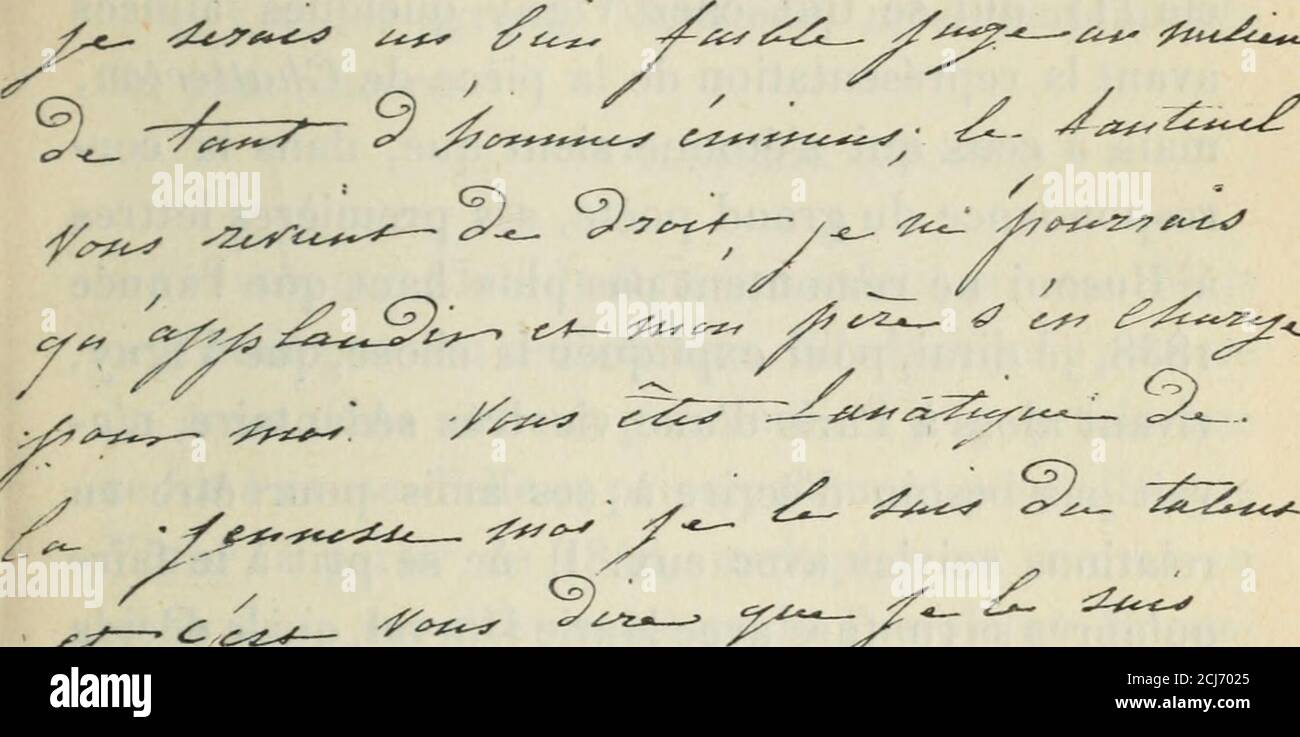 je serais un bien faible juge au milieu
de tant d'hommes éminens; le fauteuil
vous revient de droit, je ne pourrais
qu'applaudir et mon père s'en charge
pour moi. Vous êtes fanatique de
la jeunesse moi je le suis du talent
et c'est vous dire que je le suis
alamy
Image ID: 2CJ7025
www.alamy.com